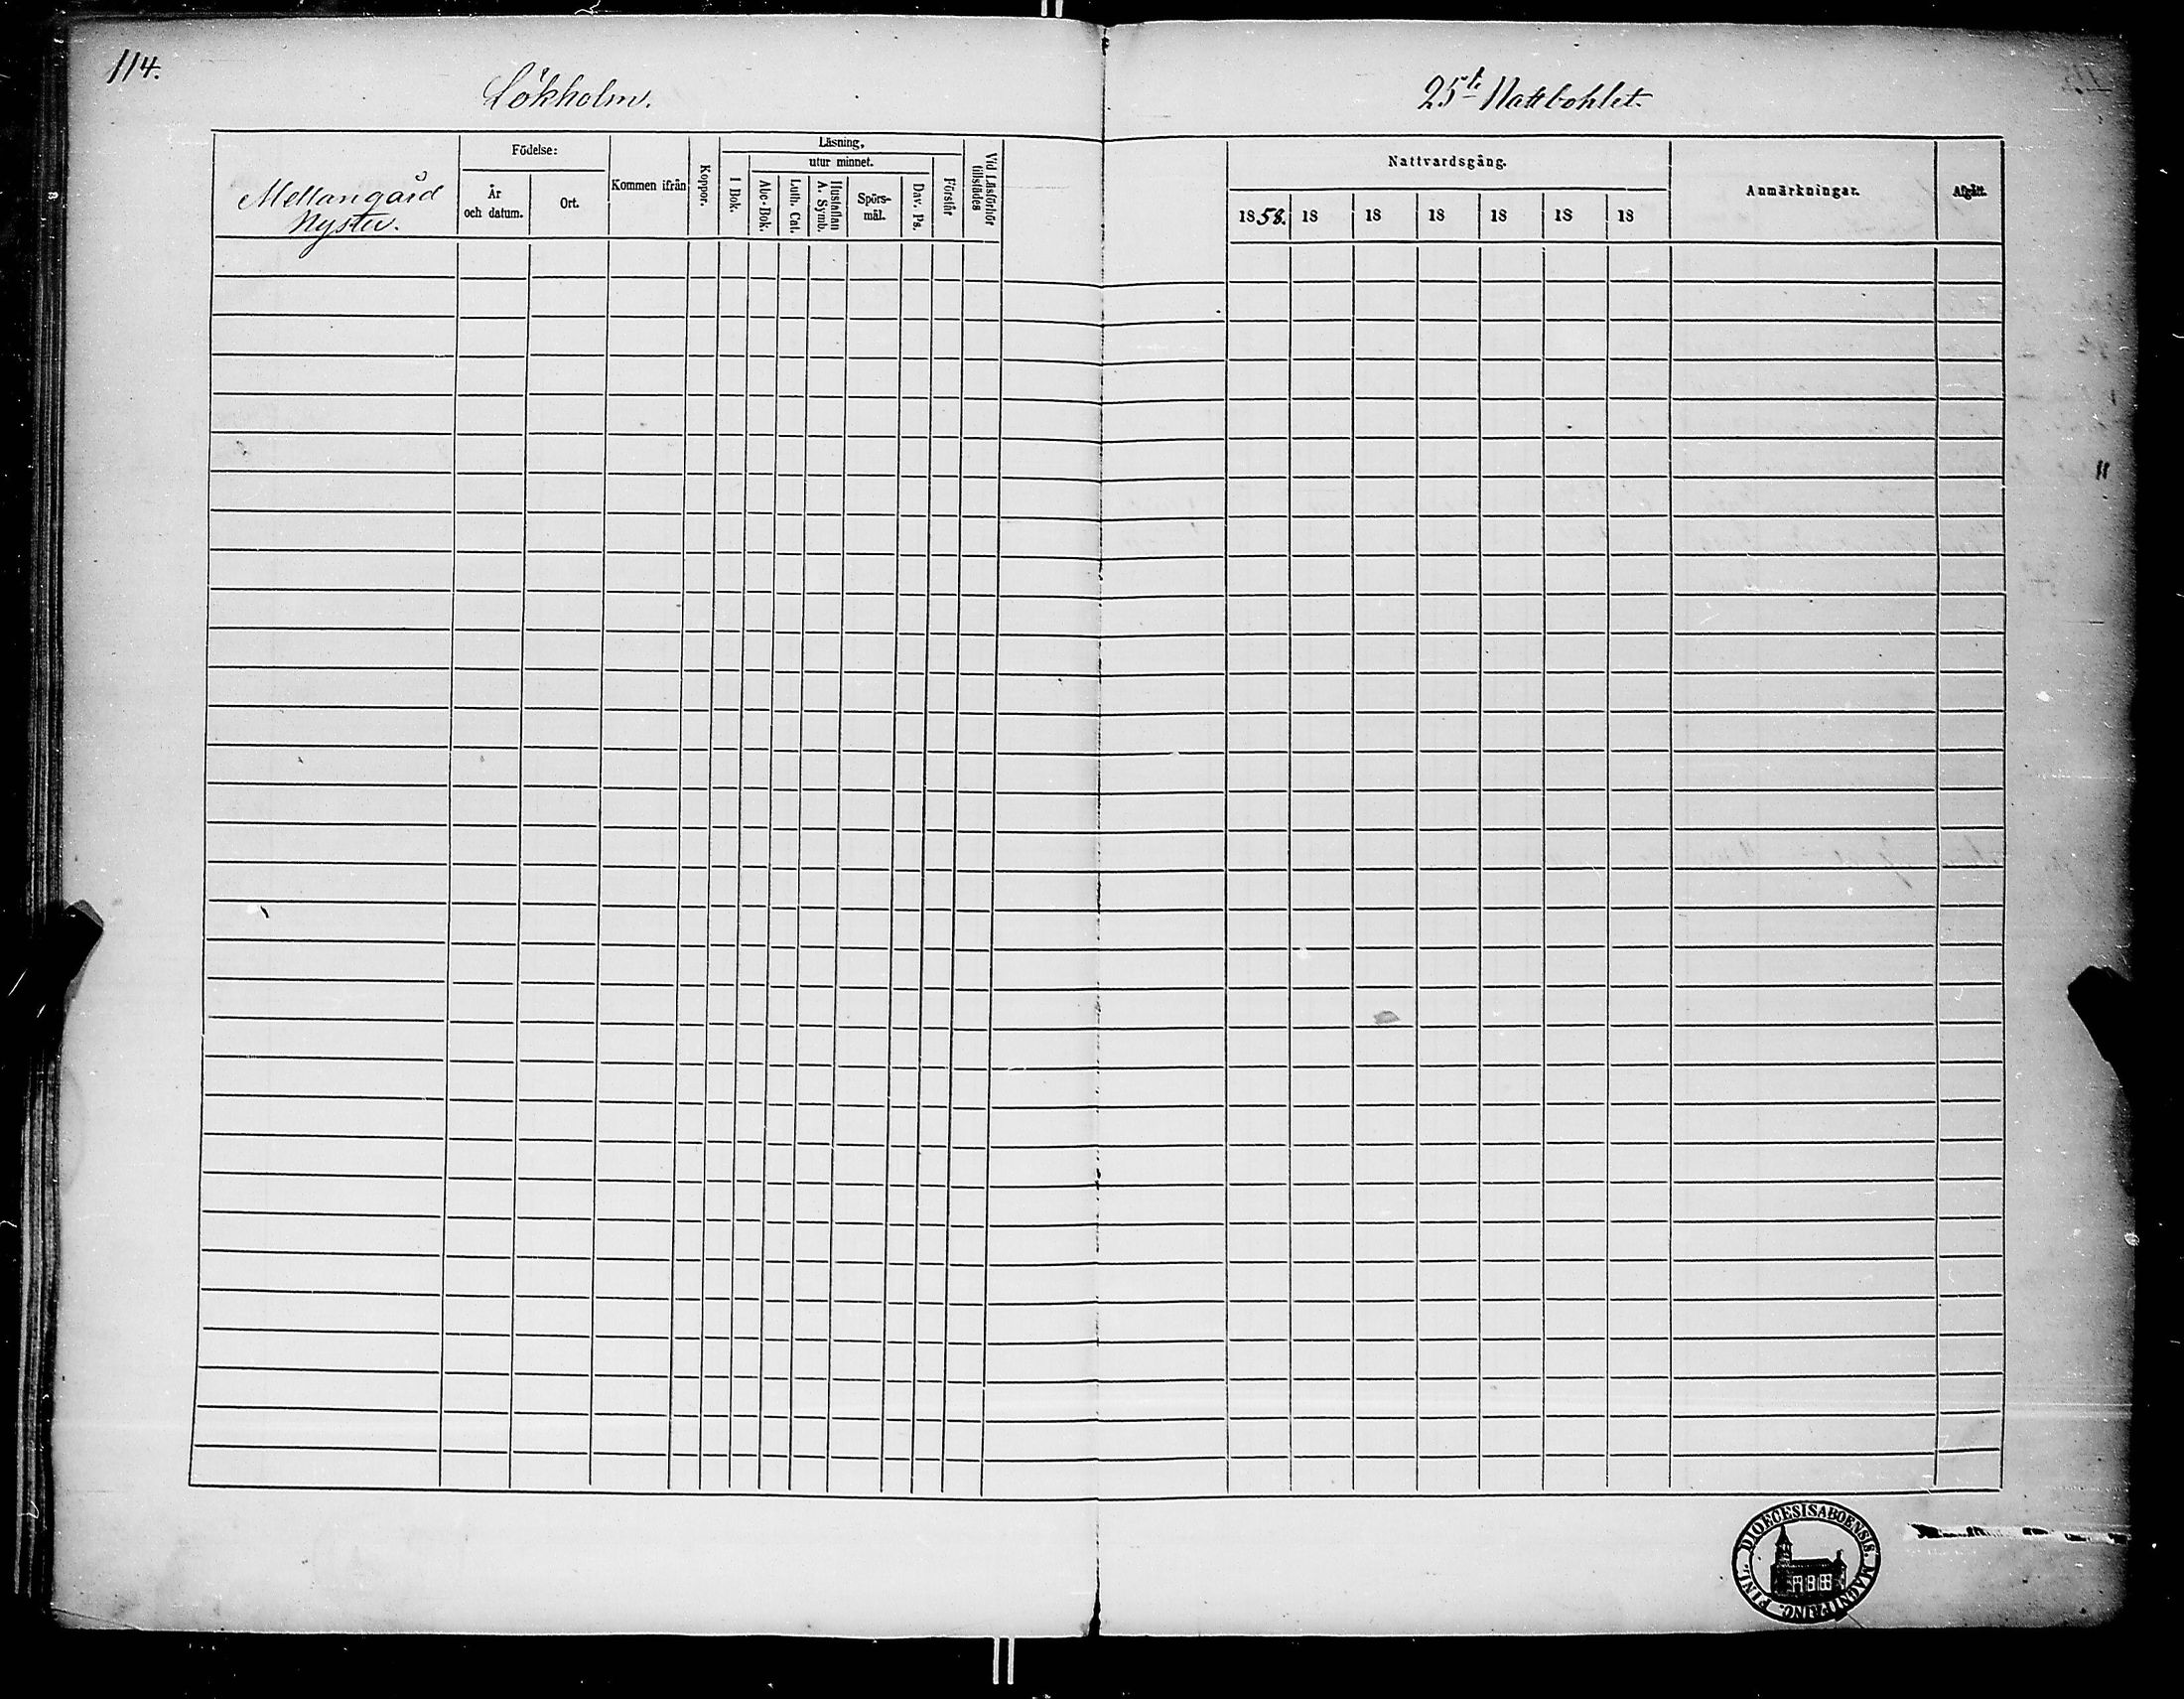 114.
Lökholm.
25te Nattbohlet.
Mellangård
Nystu.
Födelse:
År
och datum.
Ort.
Kommen ifrån
Koppor.
Läsning,
I Bok.
utur minnet.
Abc-Bok.
Luth. Cat.
Hustaflan
A. Symb.
Spörs-
mål.
Dav. Ps.
Förstår
Vid Läsförhör
tillstädes
Nattvardsgång.
1858. 18 18 18 18 18 18
Anmärkningar.
Afgått.
DIOECESIS ABOENSIS. MAGNI PRINC. FINL.